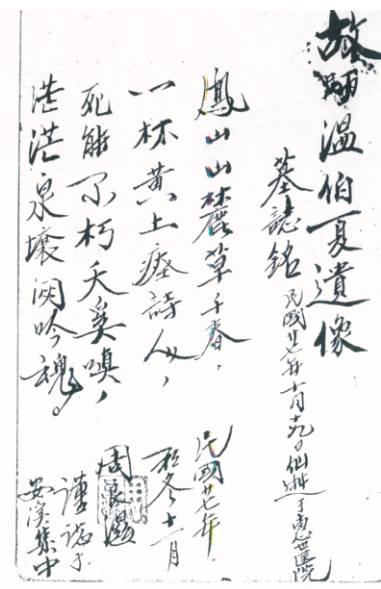 故師溫伯夏遺像
墓誌銘 民國廿七年十月九日仙逝于惠世醫院
鳳山山麓草千春,
一杯黃土瘞詩人,
死能不朽夫奚嘆,
茫茫泉壤吟魂。
民國廿七年.
冬十一月
周良
謹誌于
安溪集中